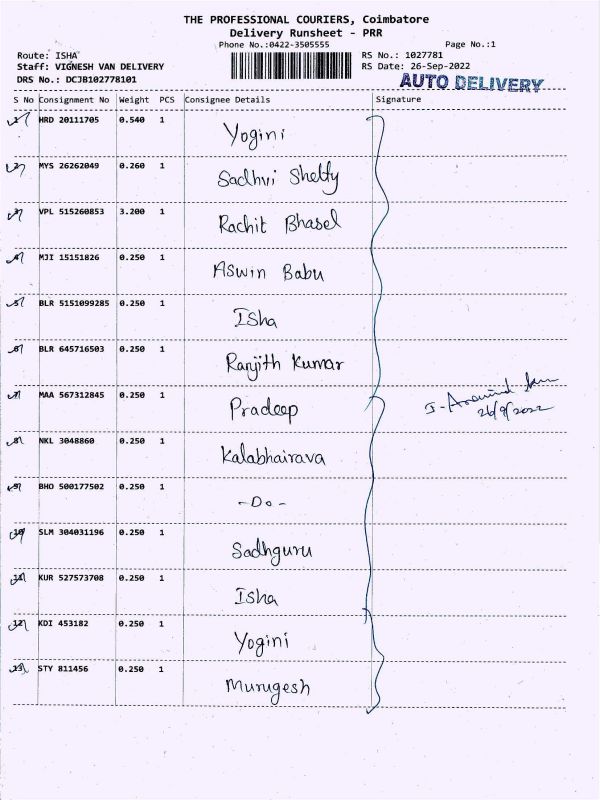 THE PROFESSIONAL COURIERS, Coimbatore
Delivery Runsheet - PRR
Phone No.:0422-3505555 Page No.:1
Route: ISHA RS No.: 1027781
Staff: VIGNESH VAN DELIVERY RS Date: 26-Sep-2022
DRS No.: DCJB102778101 AUTO DELIVERY
S No Consignment No Weight PCS Consignee Details Signature
1 HRD 20111705 0.540 1 Yogini
2 MYS 26262049 0.260 1 Sadhvi Shetty
3 VPL 515260853 3.200 1 Rachit Bhasel
4 MJI 15151826 0.250 1 Aswin Babu
5 BLR 5151099285 0.250 1 Isha
6 BLR 645716503 0.250 1 Ranjith Kumar
7 MAA 567312845 0.250 1 Pradeep
26/9/2022
8 NKL 3048860 0.250 1 Kalabhairava
9 BHO 500177502 0.250 1 -Do-
10 SLM 304031196 0.250 1 Sadhguru
11 KUR 527573708 0.250 1 Isha
12 KDI 453182 0.250 1 Yogini
13 STY 811456 0.250 1 Murugesh